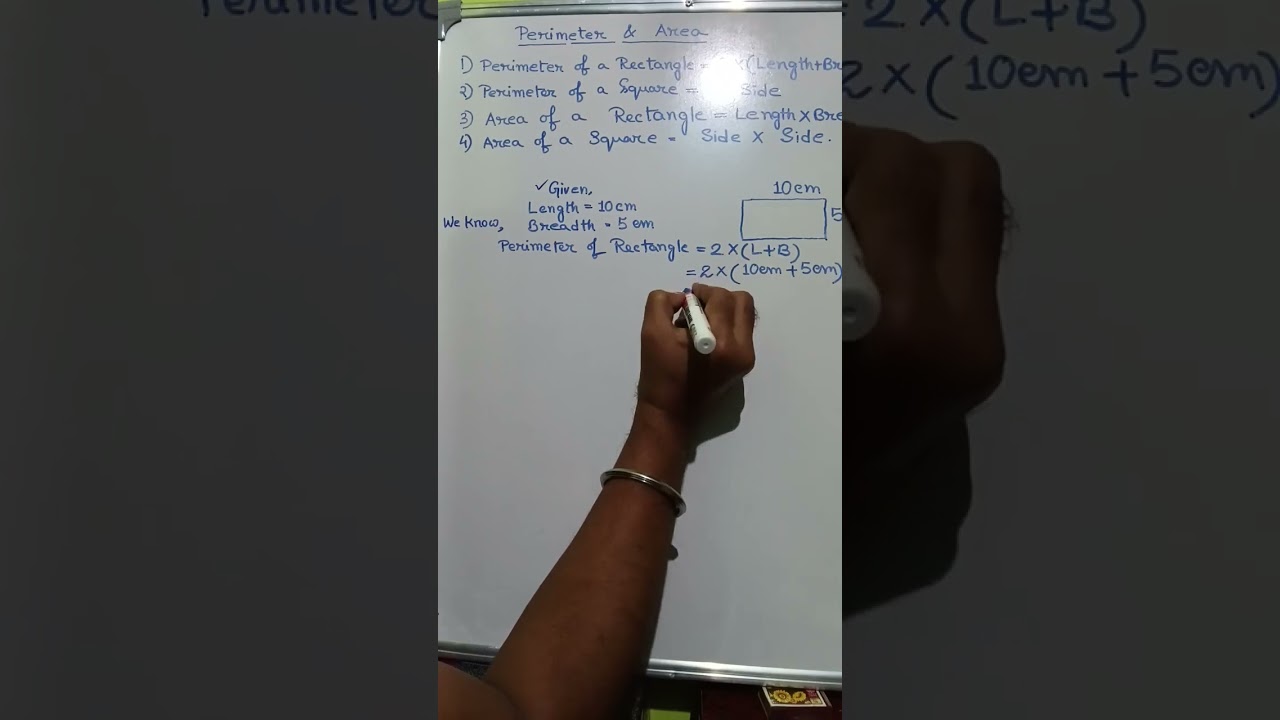 Perimeter & Area
1) Perimeter of a Rectangle = ×(Length+Bre
2) Perimeter of a Square = Side
3) Area of a Rectangle = Length×Bre
4) Area of a Square = Side × Side.
✓Given,
Length = 10 cm
We Know, Breadth = 5 cm
10 cm
5
Perimeter of Rectangle = 2×(L+B)
= 2×(10cm + 5cm)
Perimeter
= 2×(L+B)
2×(10cm + 5cm)